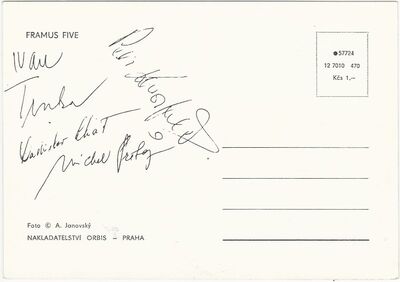 FRAMUS FIVE
Ivan
Trnka
Ladislav Chát
Michal
57724
12 7010 470
Kčs 1,–
Foto © A. Janovský
NAKLADATELSTVÍ ORBIS – PRAHA